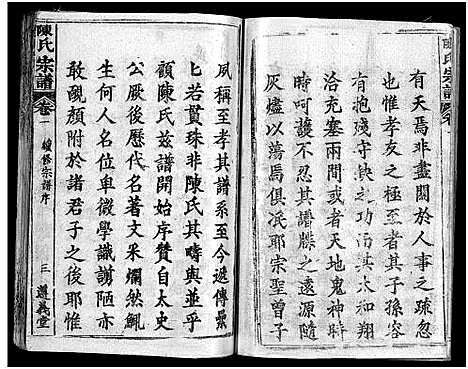 有天焉非盡關於人事之疏忽
也惟孝友之極至者其子孫容
有抱殘守缺之功而其太和翔
洽充塞兩間或者天地鬼神時
時呵護不忍其譜牒之遠源隨
灰燼以蕩焉俱泯耶宗聖曾子
陳氏宗譜
夙稱至孝其譜系至今遞傳纍
匕若貫珠非陳氏其疇與並乎
顧陳氏兹譜開始序贊自太史
公厥後歷代名著文采爛然鯫
生何人名位卑微學識謭陋亦
敢靦顏附於諸君子之後耶
陳氏宗譜 卷一 續修宗譜序 三 遵義堂